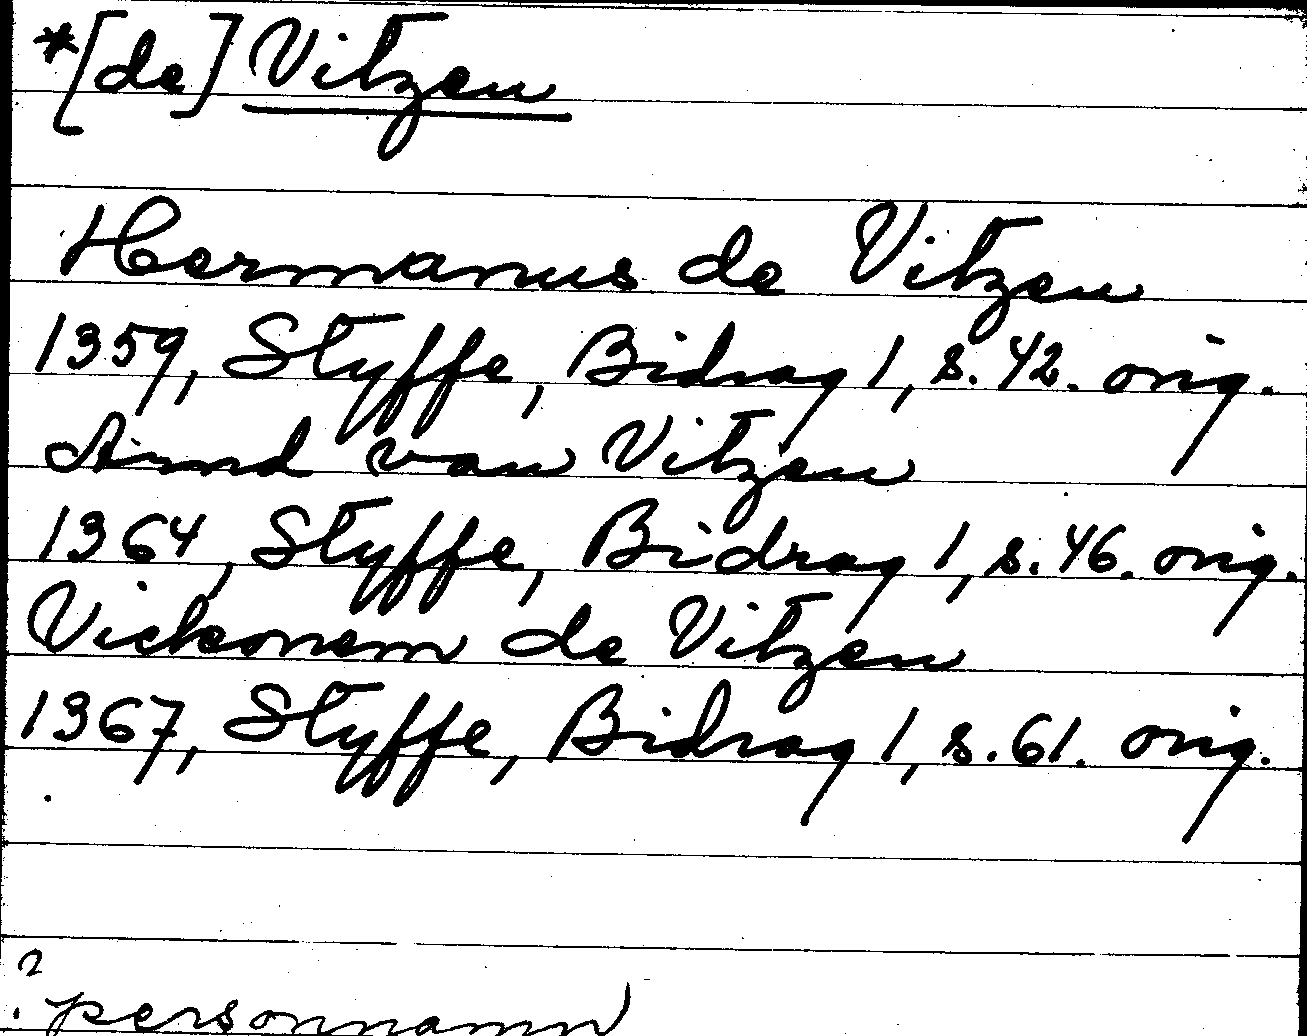 *[de] Vitzen
Hermanus de Vitzen
1359, Styffe, Bidrag 1, s. 42. orig.
Arnd van Vitzen
1364, Styffe, Bidrag 1, s. 46. orig.
Vickonem de Vitzen
1367, Styffe, Bidrag 1, s. 61. orig.
? personnamn